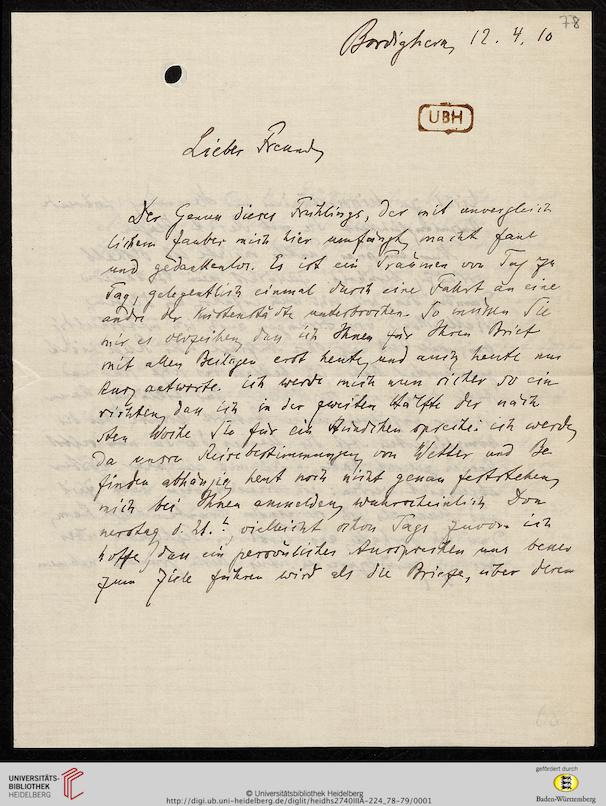 78
Bordighera, 12. 4. 10
UBH
Lieber Freund,
Der Genuss dieses Frühlings, der mit unvergleich
lichem Zauber mich hier umfängt, macht faul
und gedankenlos. Es ist ein Träumen von Tag zu
Tag, gelegentlich einmal durch eine Fahrt an eine
andre der Küstenstädte unterbrochen. So müssen Sie
mir es verzeihen, dass ich Ihnen für Ihren Brief
mit allen Beilagen erst heute, und auch heute nur
kurz antworte. Ich werde mich nun sicher so ein
richten, dass ich in der zweiten Hälfte der näch
sten Woche Sie für ein Stündchen spreche: ich werde,
da unsre Reisebestimmungen von Wetter und Be
finden abhängig heut noch nicht genau feststehen,
mich bei Ihnen anmelden, wahrscheinlich Don
nerstag d. 21.t, vielleicht schon Tags zuvor. Ich
hoffe, dass ein persönliches Aussprechen uns besser
zum Ziele führen wird als die Briefe, über deren
UNIVERSITÄTS-
BIBLIOTHEK
HEIDELBERG
© Universitätsbibliothek Heidelberg
http://digi.ub.uni-heidelberg.de/diglit/heidhs2740IIIA-224_78-79/0001
gefördert durch
Baden-Württemberg